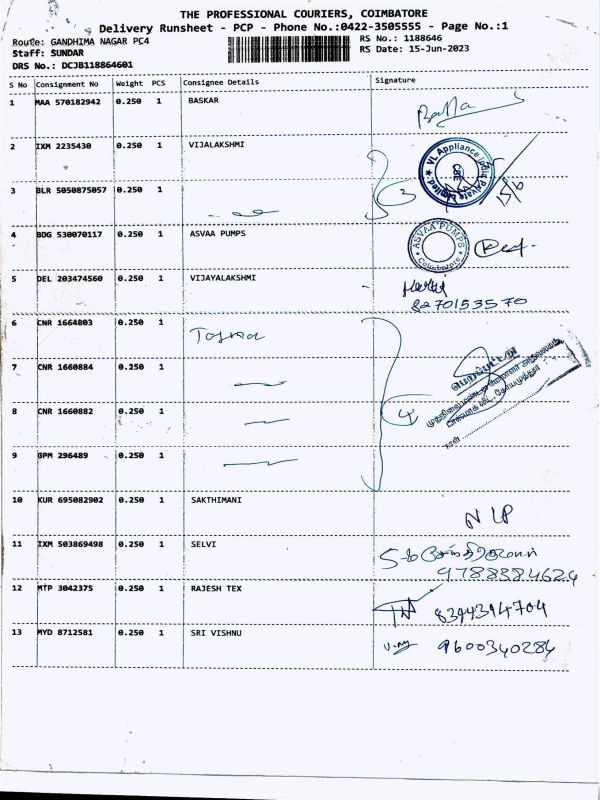 THE PROFESSIONAL COURIERS, COIMBATORE
Delivery Runsheet - PCP - Phone No.:0422-3505555 - Page No.:1
Route: GANDHIMA NAGAR PC4
RS No.: 1188646
Staff: SUNDAR
RS Date: 15-Jun-2023
DRS No.: DCJB118864601
S No Consignment No Weight PCS Consignee Details Signature
1 MAA 570182942 0.250 1 BASKAR
2 IXM 2235430 0.250 1 VIJALAKSHMI
VL Appliance India Private Limited CBE
15/6
3 BLR 5050875057 0.250 1
3
4 BDG 530070117 0.250 1 ASVAA PUMPS
ASVAA PUMPS Coimbatore
5 DEL 203474560 0.250 1 VIJAYALAKSHMI
8270153570
6 CNR 1664803 0.250 1
7 CNR 1660884 0.250 1
பெறப்பட்டது
8 CNR 1660882 0.250 1
4
நாள்
9 GPM 296489 0.250 1
10 KUR 695082902 0.250 1 SAKTHIMANI
NLP
11 IXM 503869498 0.250 1 SELVI
9788384624
12 MTP 3042375 0.250 1 RAJESH TEX
8394394704
13 MYD 8712581 0.250 1 SRI VISHNU
9600340284